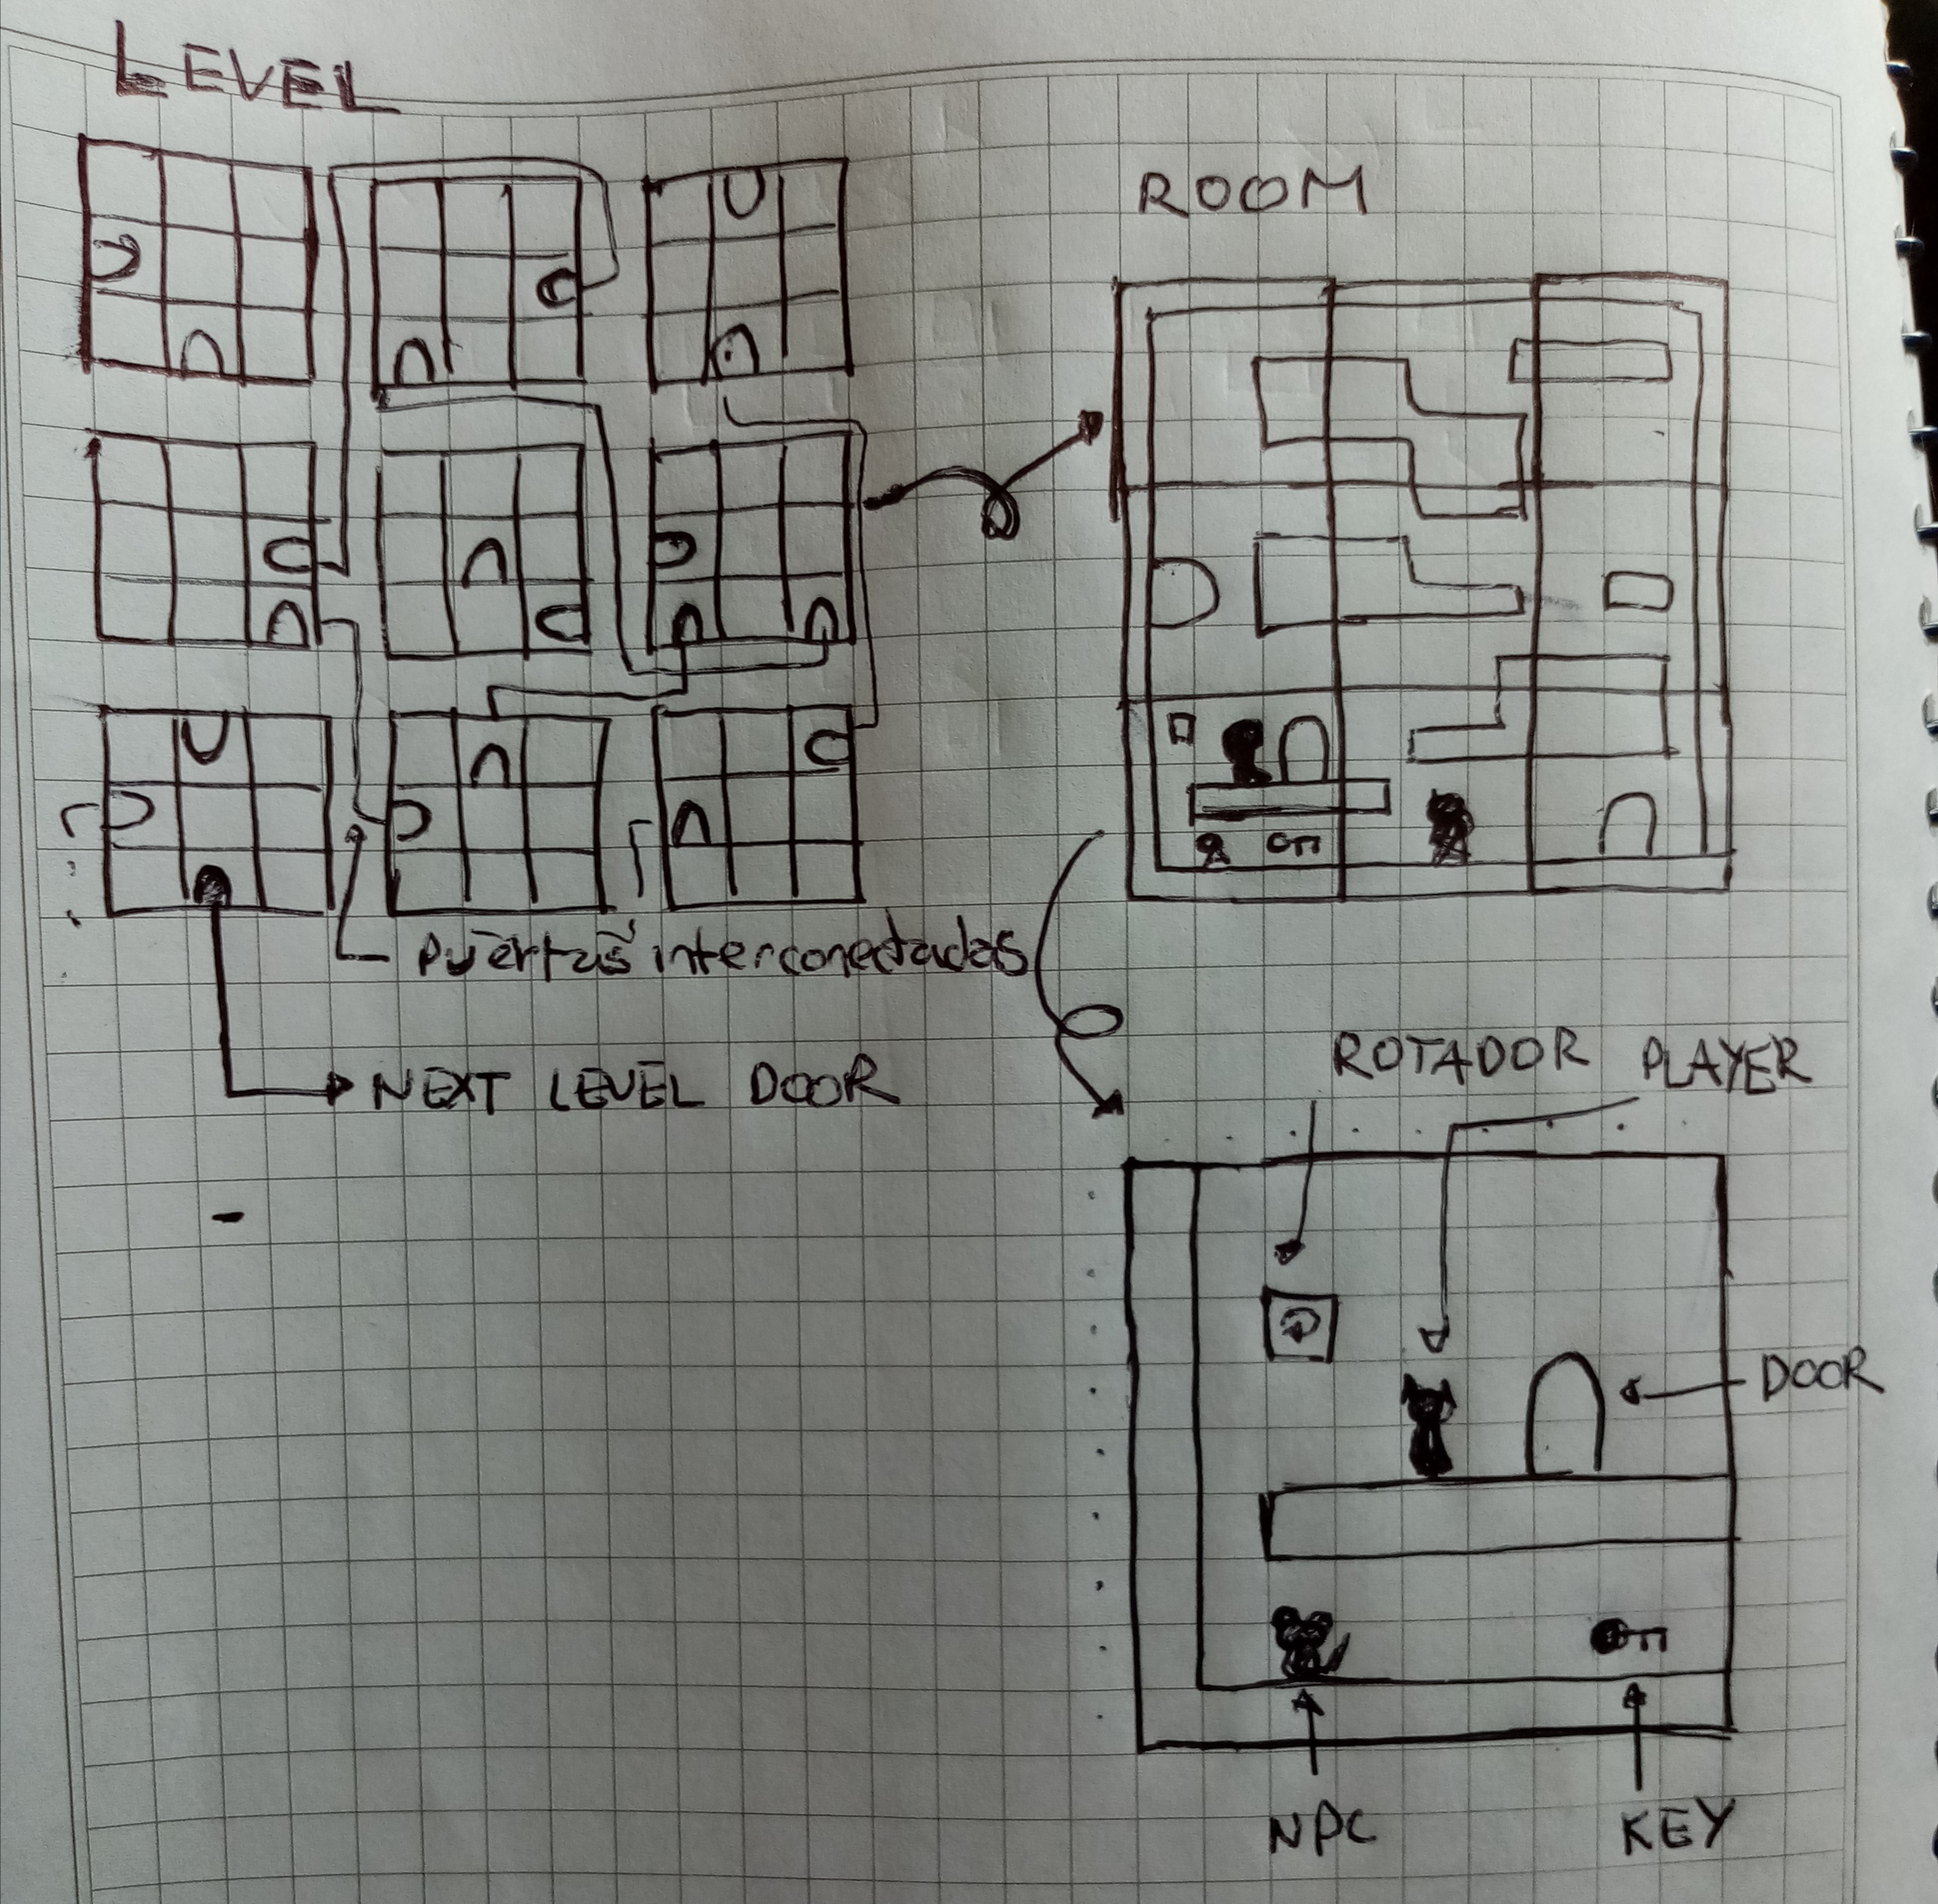 LEVEL
ROOM
Puertas interconectadas
NEXT LEVEL DOOR
ROTADOR PLAYER
DOOR
NPC
KEY